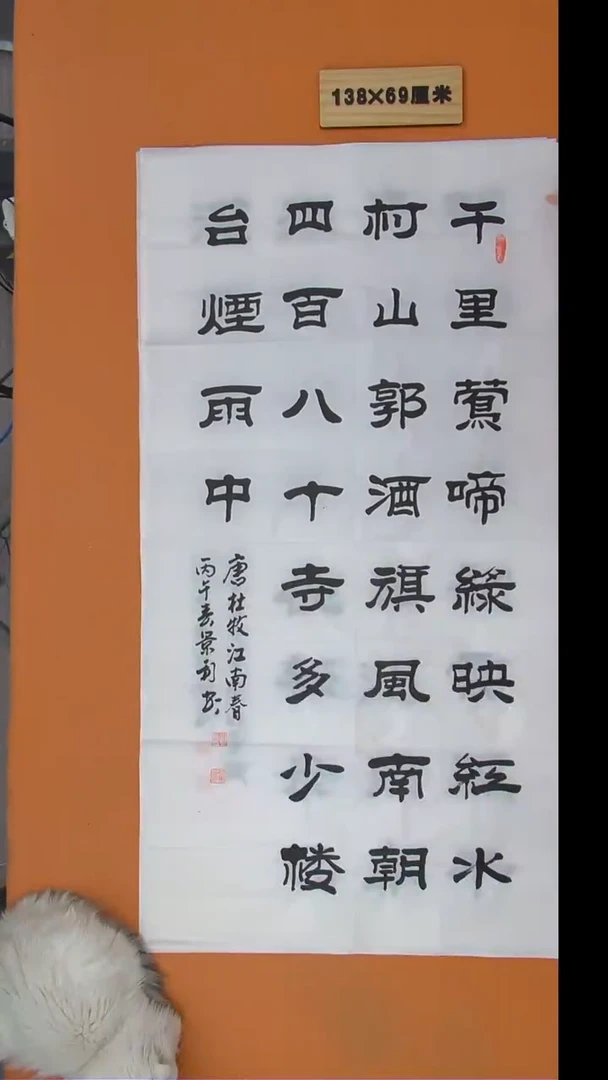 138×69厘米
千里莺啼綠映紅水
村山郭酒旗風南朝
四百八十寺多少楼
台煙雨中
唐杜牧江南春
丙午春景利书